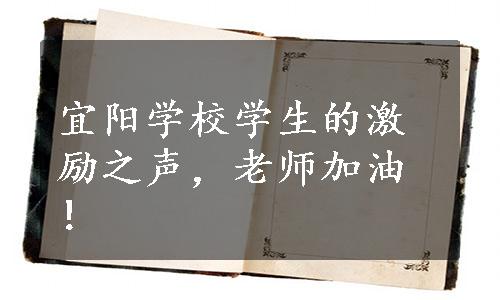 宜阳学校学生的激
励之声，老师加油
！